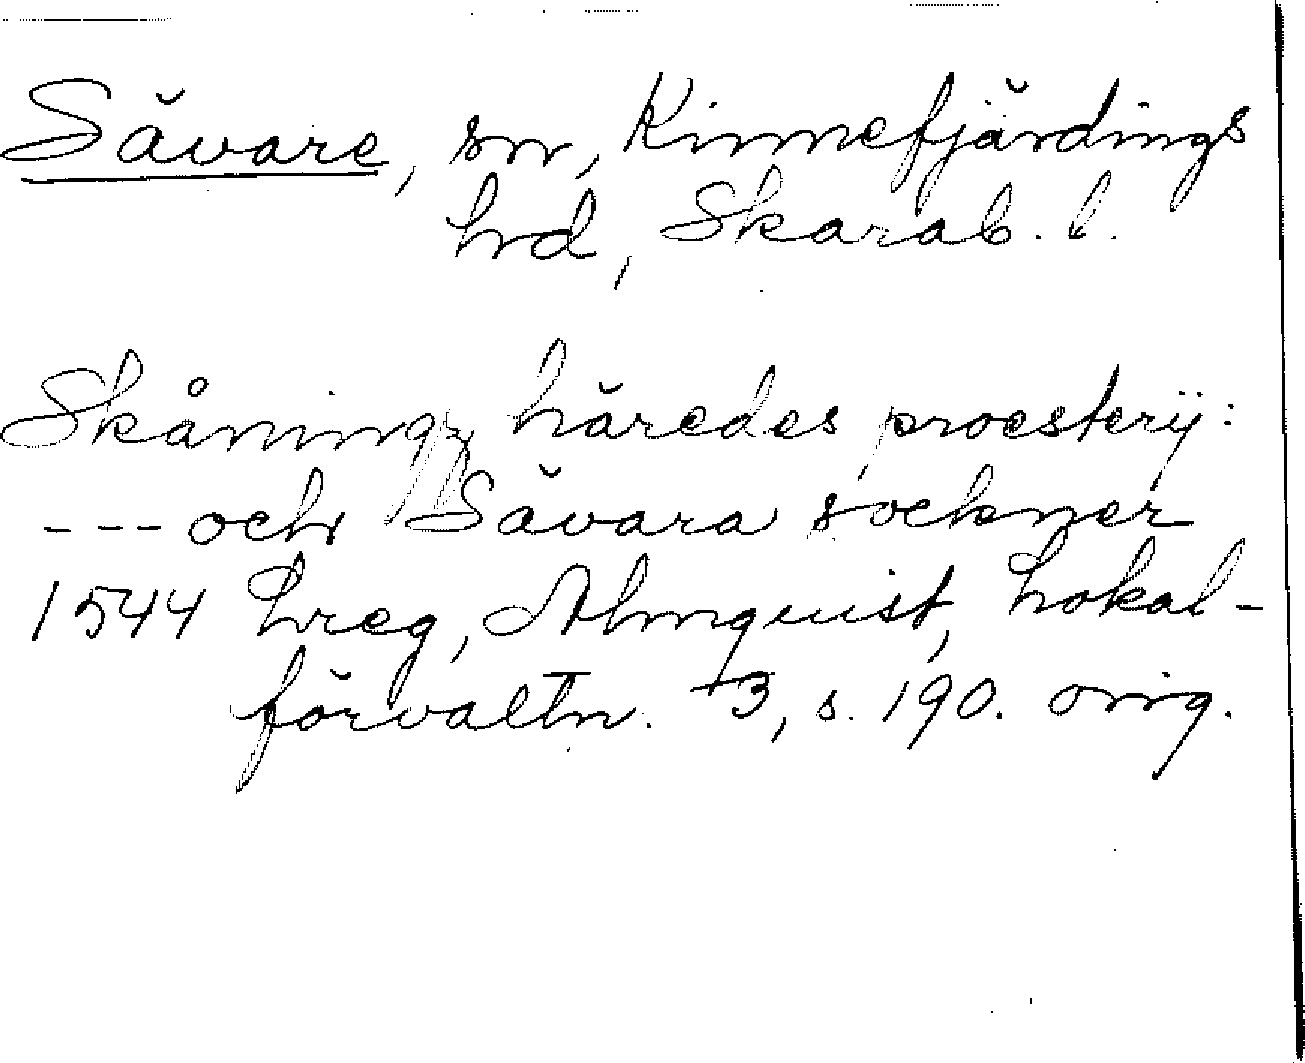 Sävare, sn, Kinnefjärdings
hrd, Skarab. l.
Skåningz häredes proesterij:
--- och Sävara sockner
1544 Lreg, Almquist, Lokal-
förvaltn. 3, s. 190. orig.